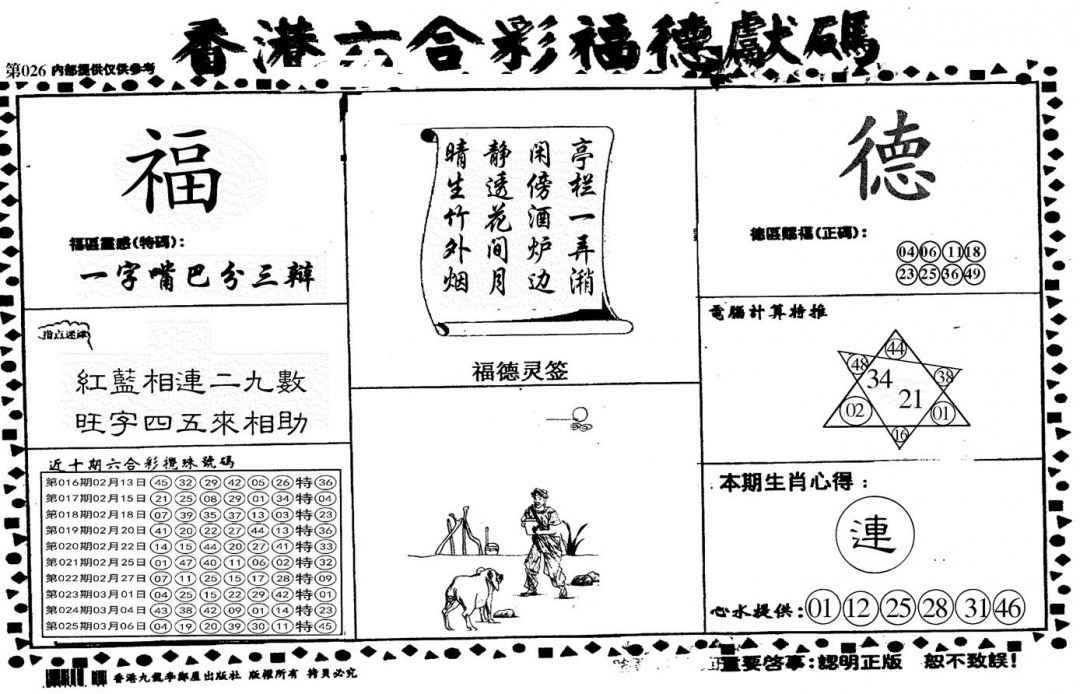 香港六合彩福德獻碼
第026 内部提供仅供参考
福
福區靈感(特碼):
一字嘴巴分三辩
指点迷津
紅藍相連二九數
旺字四五來相助
近十期六合彩攪珠號碼
第016期02月13日 45 32 29 42 05 26 特 36
第017期02月15日 21 25 08 29 01 34 特 04
第018期02月18日 07 39 35 37 13 03 特 23
第019期02月20日 41 20 22 27 44 13 特 36
第020期02月22日 14 15 44 20 27 41 特 33
第021期02月25日 01 47 40 11 06 02 特 32
第022期02月27日 07 11 25 15 17 28 特 09
第023期03月01日 04 25 15 22 29 42 特 01
第024期03月04日 43 38 42 09 01 14 特 23
第025期03月06日 04 19 20 39 30 11 特 45
亭栏一弄潲
闲傍酒炉边
静透花间月
晴生竹外烟
福德灵签
德
德區賜福(正碼):
04 06 11 18
23 25 36 49
電腦計算特推
44
48 38
34 21
02 01
16
本期生肖心得:
連
心水提供: 01 12 25 28 31 46
香港九龍李鄭屋出版社 版權所有 拷貝必究
重要啓事:認明正版 恕不致誤!